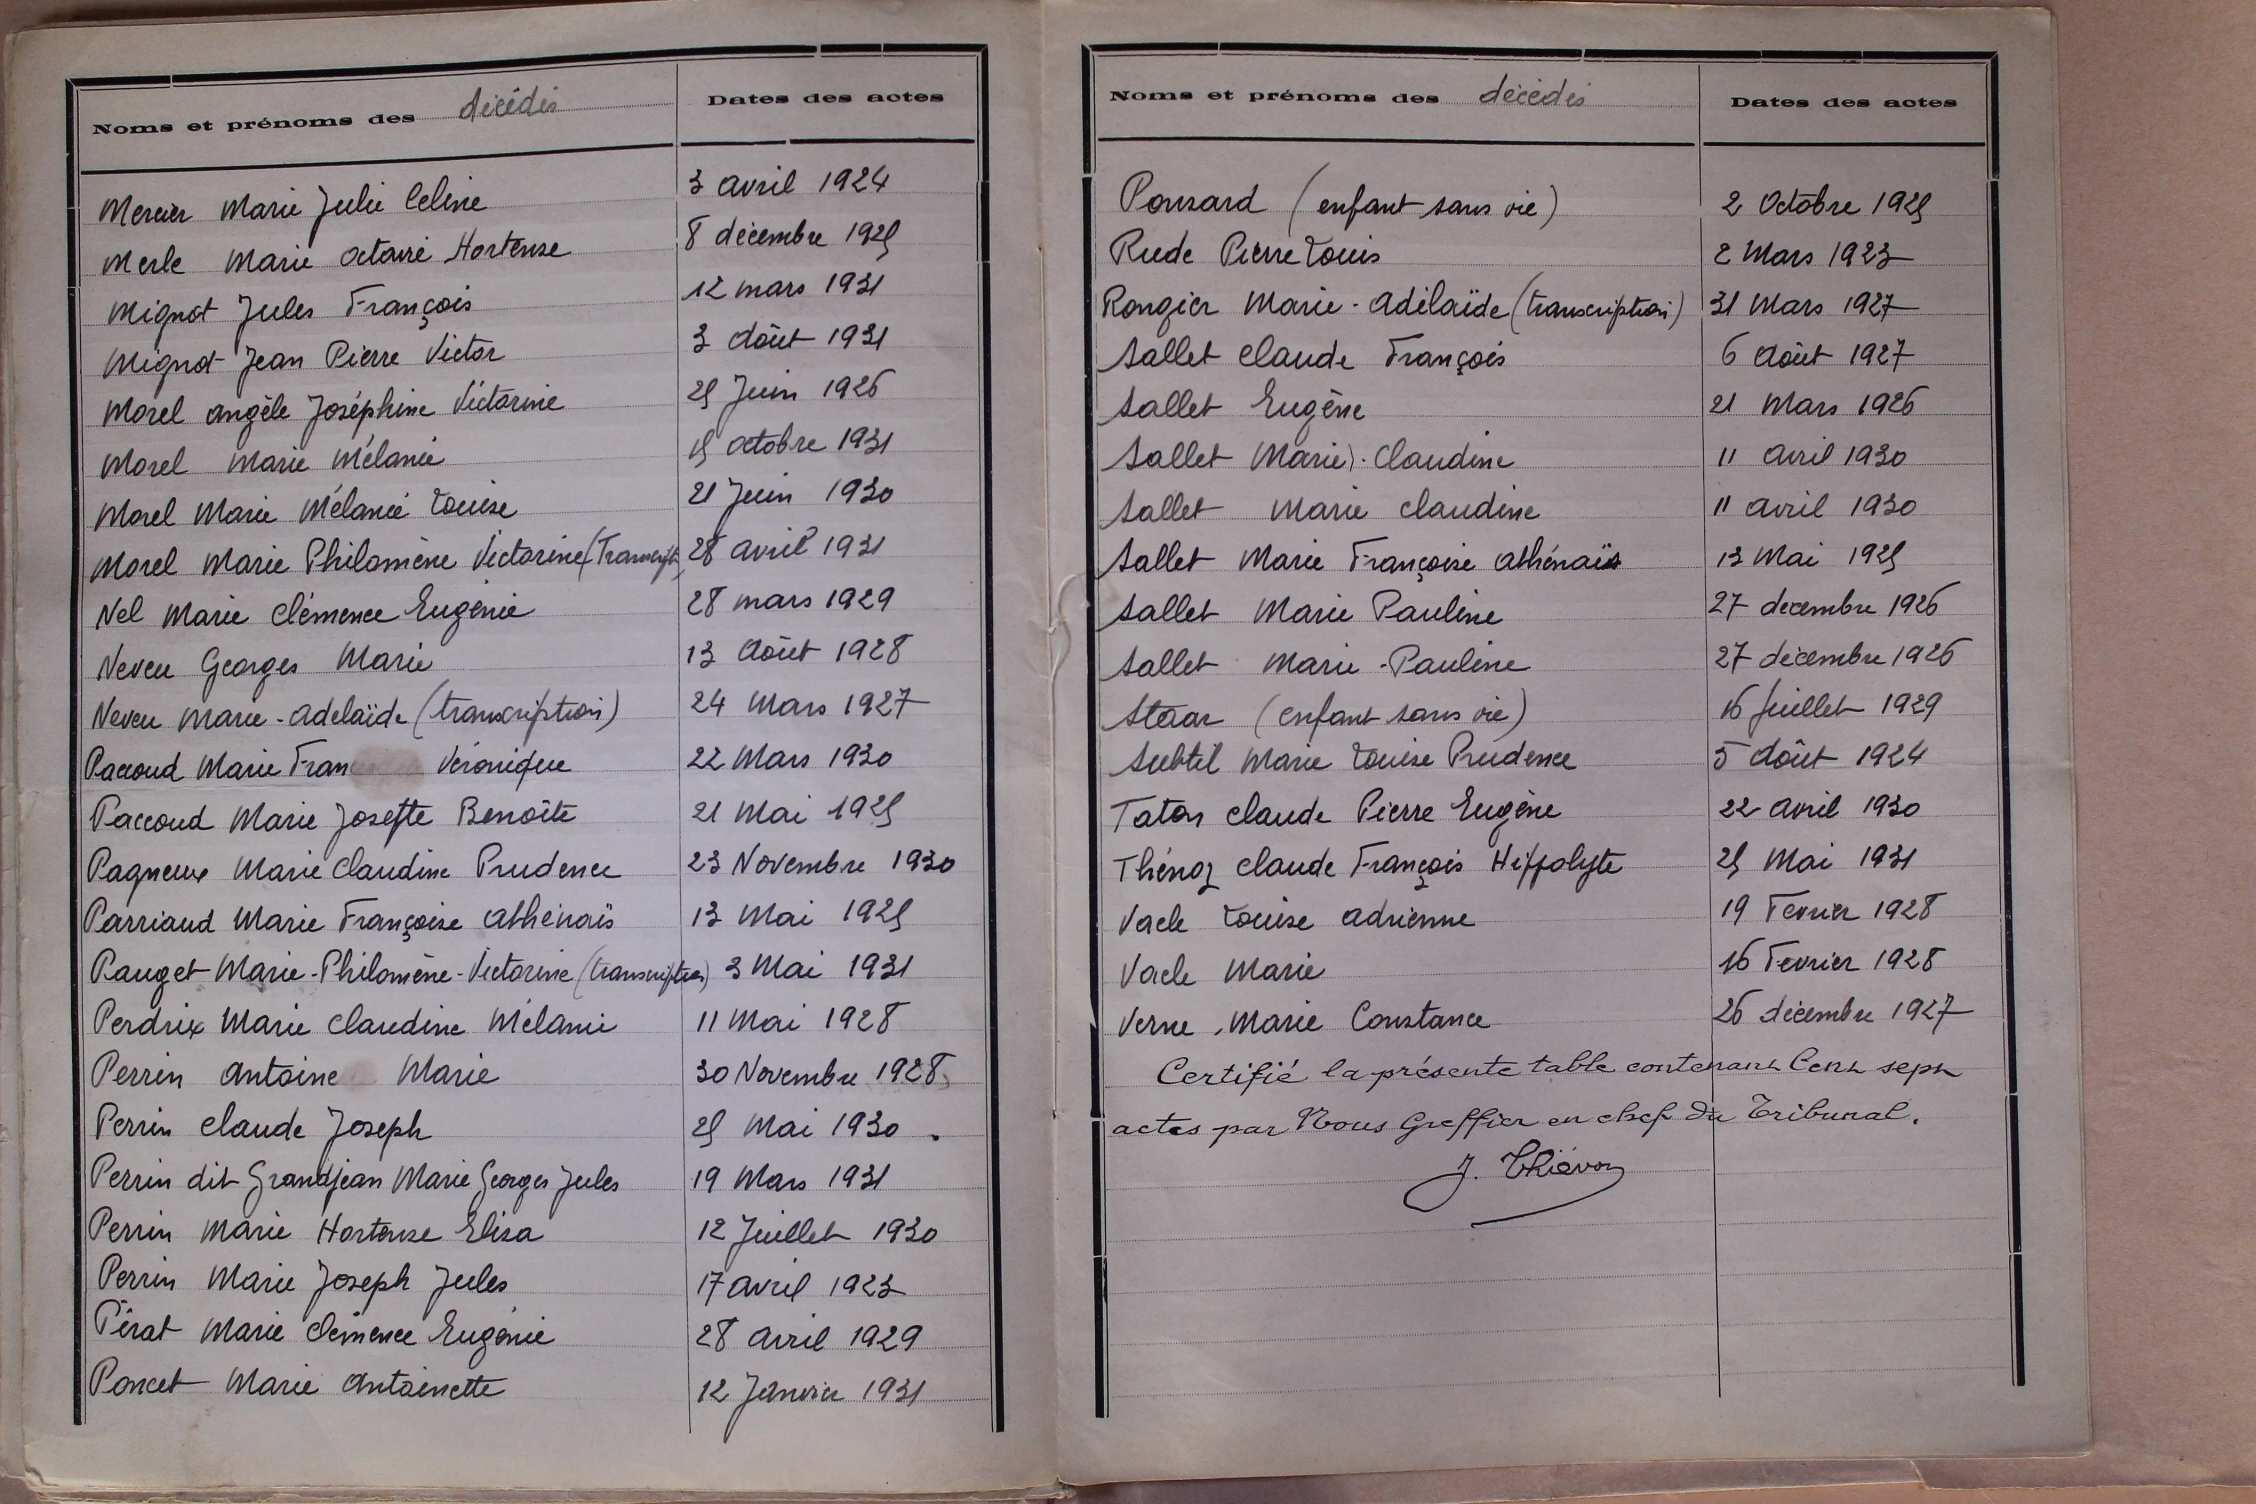 Noms et prénoms des décédés Dates des actes
Mercier Marie Julie Celine 3 avril 1924
Merle Marie Octavie Hortense 8 décembre 1925
Mignot Jules François 12 mars 1931
Mignot Jean Pierre Victor 3 Août 1931
Morel Angèle Joséphine Victorine 25 Juin 1926
Morel Marie Mélanie 15 octobre 1931
Morel Marie Mélanie Louise 21 Juin 1930
Morel Marie Philomène Victorine (Transcript 28 avril 1931
Nel Marie Clémence Eugénie 28 mars 1929
Neveu Georges Marie 13 Août 1928
Neveu Marie-Adelaïde (transcription) 24 Mars 1927
Paccoud Marie Fran Véronique 22 Mars 1930
Paccoud Marie Josette Benoîte 21 Mai 1925
Pagneux Marie Claudine Prudence 23 Novembre 1930
Parriaud Marie Françoise Athénaïs 13 Mai 1925
Pauget Marie-Philomène-Victorine (transcription) 3 Mai 1931
Perdrix Marie Claudine Mélanie 11 Mai 1928
Perrin Antoine Marie 30 Novembre 1928
Perrin Claude Joseph 25 Mai 1930
Perrin dit Grandjean Marie Georges Jules 19 Mars 1931
Perrin Marie Hortense Elisa 12 Juillet 1930
Perrin Marie Joseph Jules 17 avril 1923
Pérat Marie Clémence Eugénie 28 Avril 1929
Poncet Marie Antoinette 12 Janvier 1931
Noms et prénoms des décédés Dates des actes
Ponsard (enfant sans vie) 2 Octobre 1925
Rude Pierre Louis 2 Mars 1923
Rongier Marie-Adélaïde (transcription) 31 Mars 1927
Sallet Claude François 6 Août 1927
Sallet Eugène 21 Mars 1926
Sallet (Marie)-Claudine 11 Avril 1930
Sallet Marie Claudine 11 avril 1930
Sallet Marie Françoise Athénaïs 13 Mai 1925
Sallet Marie Pauline 27 decembre 1926
Sallet Marie-Pauline 27 décembre 1926
Staar (enfant sans vie) 16 Juillet 1929
Subtil Marie Louise Prudence 5 Août 1924
Taton Claude Pierre Eugène 22 avril 1930
Thénoz Claude François Hippolyte 25 Mai 1931
Vacle Louise Adrienne 19 Fevrier 1928
Vacle Marie 16 Fevrier 1928
Verne Marie Constance 26 décembre 1927
Certifié la présente table contenant Cent sept
actes par Nous Greffier en chef du Tribunal.
J. Thiévon